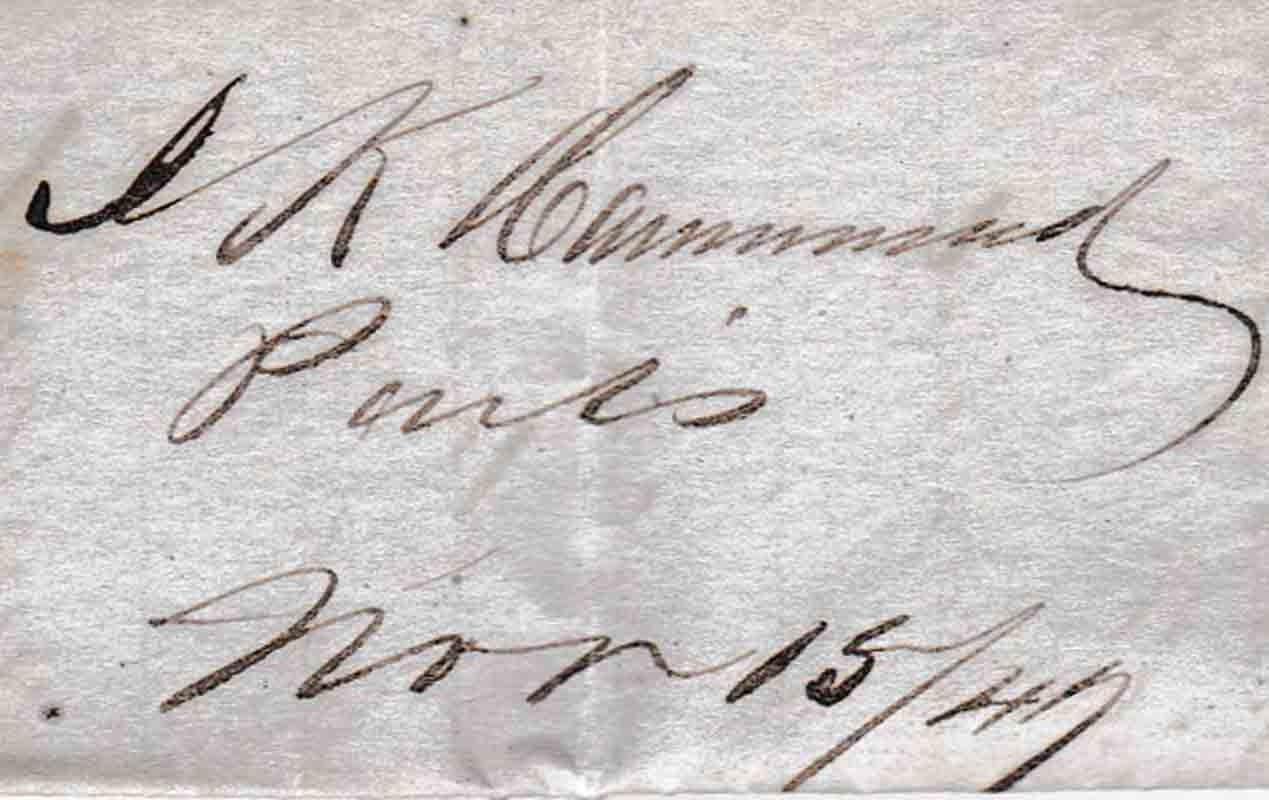 J K Hammond
Paris
Nov 15/47